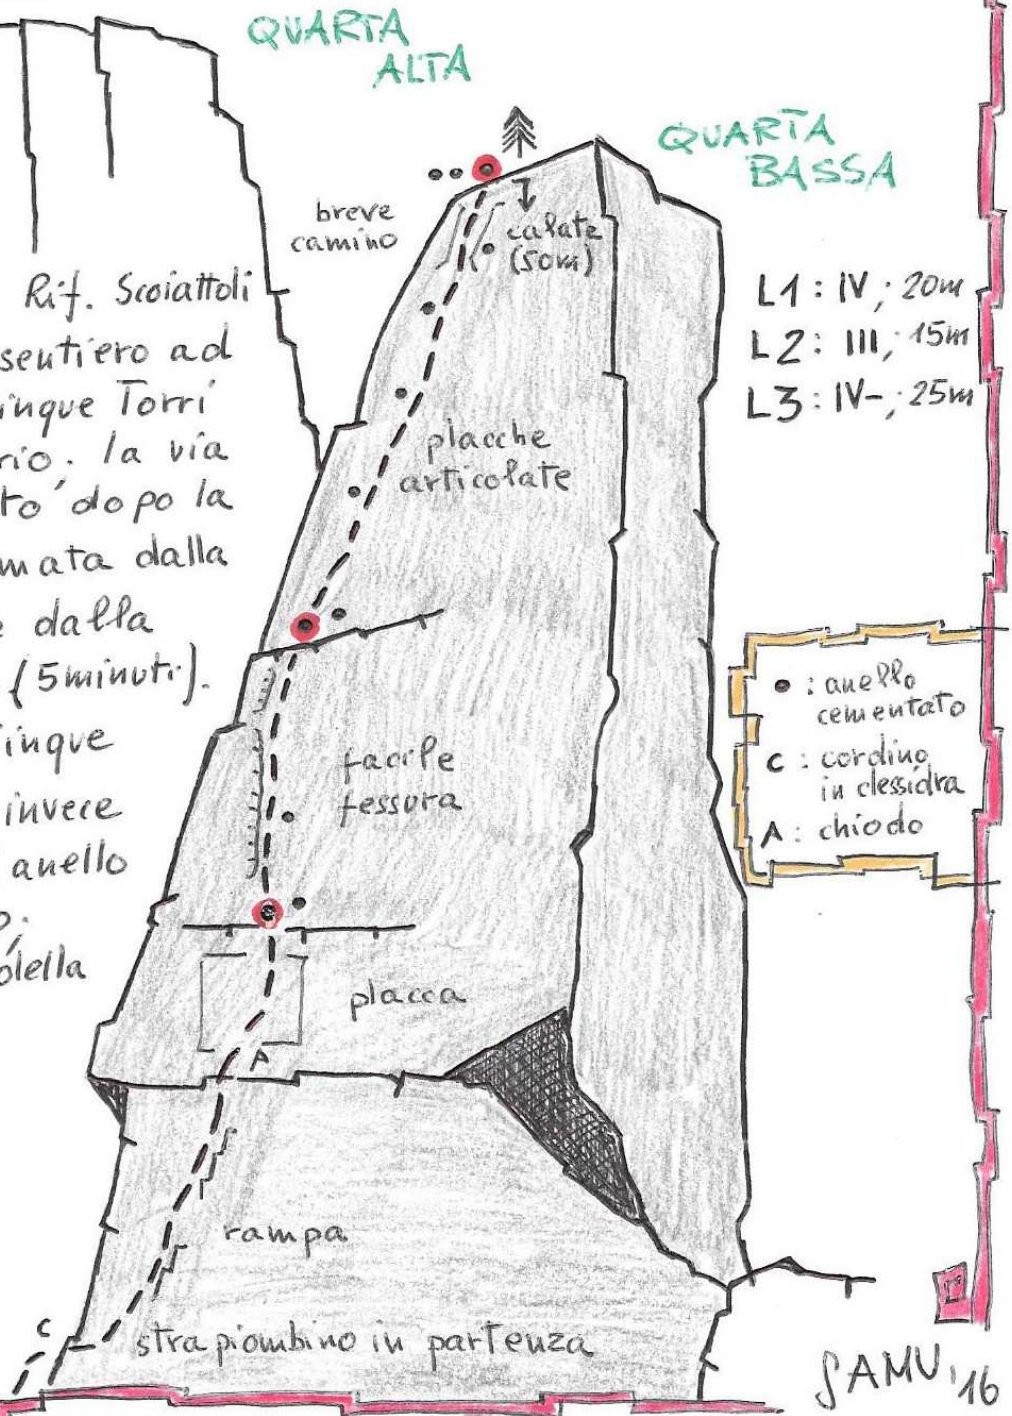 QUARTA
ALTA
QUARTA
BASSA
breve
camino
calate
(50m)
Rif. Scoiattoli
sentiero ad
inque Torri
rio. la via
to' dopo la
mata dalla
e dalla
(5minuti).
inque
invece
anello
o.
olella
L1: IV; 20m
L2: III; 15m
L3: IV-; 25m
placche
articolate
facile
fessura
placca
A
rampa
C
strapiombino in partenza
• : anello
cementato
C : cordino
in clessidra
A : chiodo
SAMU '16